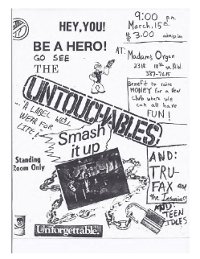 HEY, YOU!
BE A HERO!
GO SEE
THE
UNTOUCHABLES
9:00 pm
March, 15th
$3.00 admission
AT: Madams Organ
2318 18th st. NW
Benefit to raise
MONEY for a few
Club where we
can all have
FUN!
... A LABEL WE'LL
WEAR FOR
LIFE!
Smash
it up
Standing
Room Only
AND:
TRU-
FAX and
The Insaniacs
AND:
TEEN
IDLES
Unforgettable.